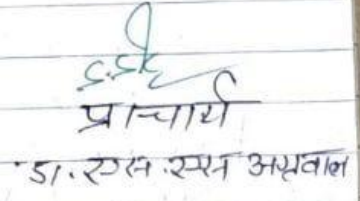 प्राचार्य
डा. एस. एस अग्रवाल